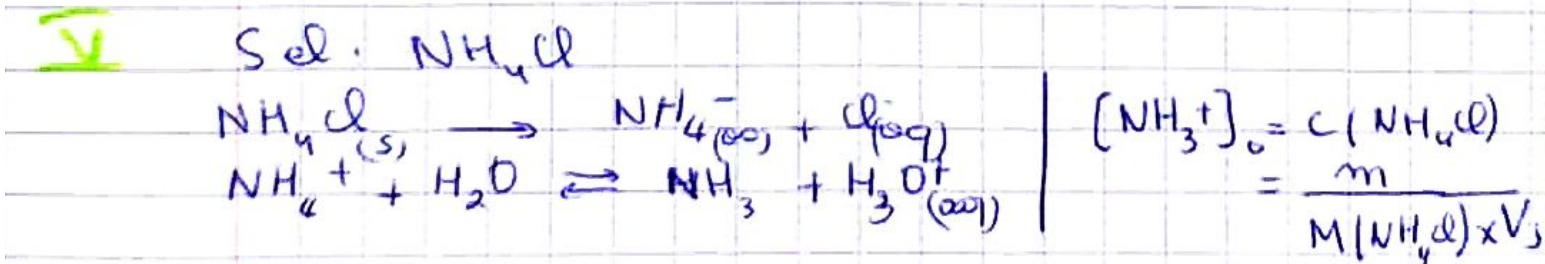 V Sel. NH₄Cl
NH₄Cl(s) → NH₄⁻(aq) + Cl(aq)
NH₄⁺ + H₂O ⇌ NH₃ + H₃O⁺(aq)
[NH₃⁺]₀ = C(NH₄Cl)
= m
M(NH₄Cl)×Vs